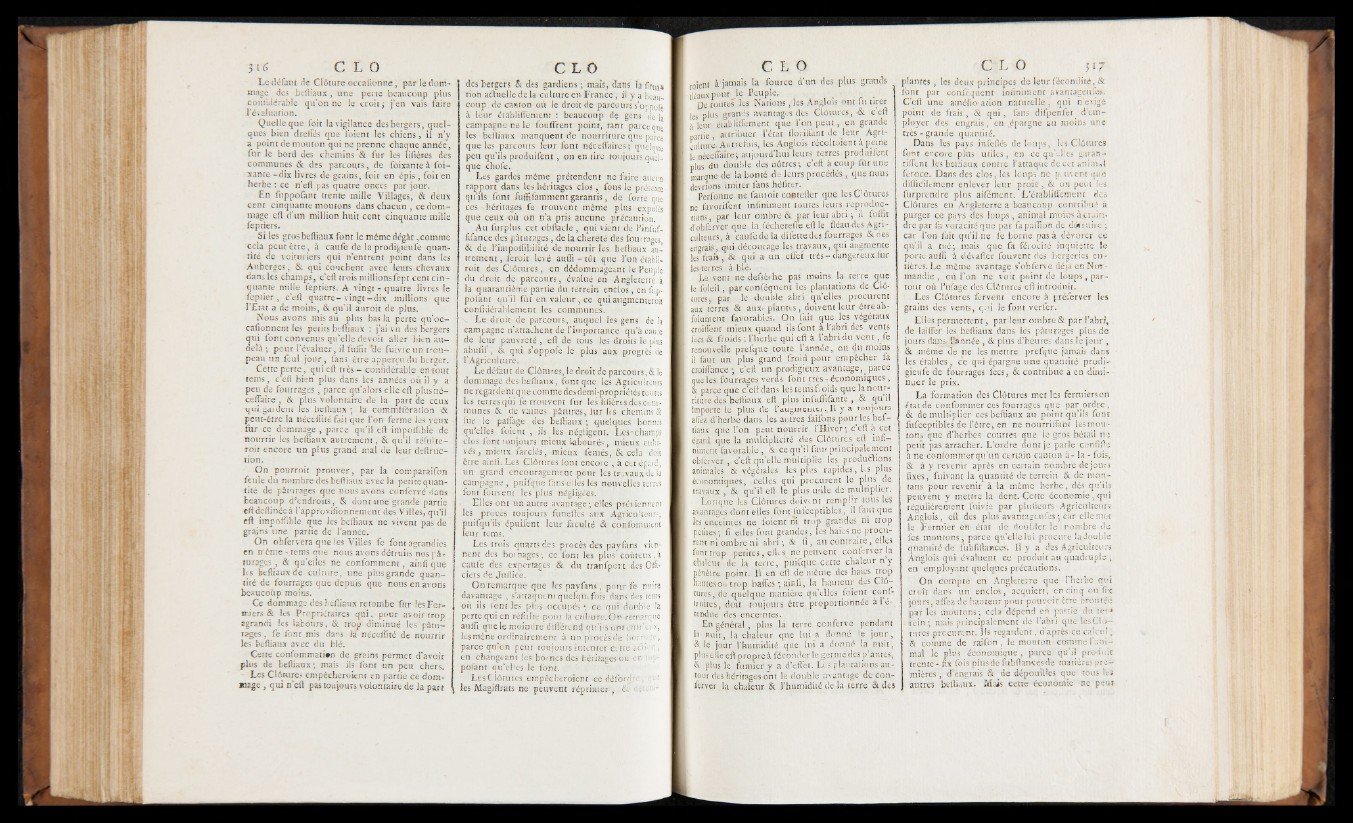 316 C L O
Le défaut de Clôture occasionne, par le dom-
mage des bestiaux, une perte beaucoup plus
considérable qu'on ne le croit; j'en vais faire
l'évaluation.
Quelle que soit la vigilance des bergers, quel-
ques bien dressés que soient les chiens, il n'y
a point de mouton qui ne prenne chaque année,
sur le bord des chemins & sur les lisières des
communes & des parcours, de soixante à soi-
xante-dix livres de grains, soit en épis, soit en
herbe : ce n'est pas quatre onces par jour.
En supposant trente mille Villages, & deux
cent cinquante moutons dans chacun, ce dom-
mage est d'un million huit cent cinquante mille
septiers.
Si les gros bestiaux font le même dégât, comme
cela peut être, à cause de la prodigieuse quan-
tité de voituriers qui n'entrent point dans les
Auberges, & qui couchent avec leurs chevaux
dans les champs, c'est trois millions sept cent cin-
quante mille septiers. A vingt-quatre livres le
septier, c'est quatre-vingt-dix millions que
l'Etat a de moins, & qu'il auroit de plus.
Nous avons mis au plus bas la perte qu'oc-
casionnent les petits bestiaux : j'ai vu des bergers
qui sont convenus qu'elle devoit aller bien au-
delà; pour l'évaluer, il suffit de suivre un trou-
peau un seul jour, sans être apperçu du berger.
Cette perte, qui est très-considérable en tout
tems, c'est bien plus dans les années où il y a
peu de fourrages, parce qu'alors elle est plus né-
cessaire, & plus volontaire de la part de ceux
qui gardent les bestiaux; la commisération &
peut-être la nécessité fait que l'on ferme les yeux
sur ce dommage, parce qu'il est impossible de
nourrir les bestiaux autrement, & qu'il résulte-
roit encore un plus grand mal de leur destruc-
tion.
On pourroit prouver, par la comparaison
seule du nombre des bestiaux avec la petite quan-
tité de pâturages que nous avons conservé dans
beaucoup d'endroits, & dont une grande partie
est destinée à l'approvisionnement des Villes, qu'il
est impossible que les bestiaux ne vivent pas de
grains une partie de l'année.
On observera que les Villes se sont agrandies
en même-tems que nous avons détruits nos pâ-
turages, & qu'elles ne consomment, ainsi que
les bestiaux de culture, une plus grande quan-
tité de fourrages que depuis que nous en avons
beaucoup moins.
Ce dommage des bestiaux retombe sur les Fer-
miers & les Propriétaires qui, pour avoir trop
agrandi les labours, & trop diminué les pâtu-
rages, se sont mis dans la nécessité de nourrir
les bestiaux avec du blé.
Cette consommation de grains permet d'avoir
plus de bestiaux; mais ils sont un peu chers.
Les Clôtures empêcheroient en partie ce dom-
mage, qui n'est pas toujours volontaire de la part
C L O
des bergers & des gardiens; mais, dans la situa-
tion actuelle de la culture en France, il y a beau-
coup de canton où le droit de parcours s'oppose
à leur établissement : beaucoup de gens de la
campagne ne le souffrent point, tant parce que
les bestiaux manquent de nourriture que parce
que les parcours leur sont nécessaires; quelque
peu qu'ils produisent, on en tire toujours quel-
que chose.
Les gardes même prétendent ne faire aucun
rapport dans les héritages clos, sous le prétexte
qu'ils sont suffisamment garantis, de sorte que
ces héritages se trouvent même plus exposés
que ceux où on n'a pris aucune précaution.
Au surplus cet obstacle, qui vient de l'insuf-
fisance des pâturages, de la chereté des fourrages,
& de l'impossibilité de nourrir les bestiaux au-
trement, seroit levé aussi-tôt que l'on établi-
roit des Clôtures, en dédommageant le Peuple
du droit de parcours, évalué en Angleterre à
la quarantième partie du terrein enclos, en sup-
posant qu'il fut en valeur, ce qui augmenteroit
considérablement les communes.
Le droit de parcours, auquel les gens de la
campagne n'attachent de l'importance qu'à cause
de leur pauvreté, est de tous les droits le plus
abusif, & qui s'oppose le plus aux progrès de
l'Agriculture.
Le défaut de Clôtures, le droit de parcours, & le
dommage des bestiaux, font que les Agriculteurs
ne regardent que comme des demi-propriétés toutes
les terres qui se trouvent sur les lisières des com-
munes & de vaines pâtures, sur les chemins &
sur le passage des bestiaux; quelques bonnes
qu'elles soient, ils les négligent. Les champs
clos sont toujours mieux labourés, mieux culti-
vés, mieux sarclés, mieux semés, & cela doit
être ainsi. Les Clôtures sont encore, à cet égard,
un grand encouragement pour les travaux de la
campagne, puisque sans elles les nouvelles terres
sont souvent les plus négligées.
Elles ont un autre avantage; elles préviennent
les procès toujours funestes aux Agriculteurs,
puisqu'ils épuisent leur faculté & consomment
leur tems.
Les trois quarts des procès des paysans vien-
nent des bornages; ce sont les plus coûteux, à
cause des expertages & du transport des Offi-
ciers de Justice.
On remarque que les paysans, pour se nuire
davantage, s'attaquent quelquefois dans des tems
où ils sont les plus occupés; ce qui double la
perte qui en résulte pour la culture. On remarque
aussi que le moindre différend qu'ils ont entr'eux,
les mène ordinairement à un procès de bornage,
parce qu'on peut toujours intenter cette action,
en changeant les bornes des héritages ou en sup-
posant qu'elles le sont.
Les Clôtures empêcheroient ce désordre, que
les Magistrats ne peuvent réprimer, &
C L O
roient à jamais la source d'un des plus grands
fléaux pour le Peuple.
De toutes les Nations, les Anglois ont su tirer
les plus grands avantages des Clôtures, & c'est
à leur établissement que l'on peut, en grande
partie, attribuer l'état florissant de leur Agri-
culture. Autrefois, les Anglois récoltoient à peine
le nécessaire; aujourd'hui leurs terres produisent
plus du double des nôtres; c'est à coup sûr une
marque de la bonté de leurs procédés, que nous
devrions imiter sans hésiter.
Personne ne sauroit contester que les Clôtures
ne favorisent infiniment toutes leurs reproduc-
tions, par leur ombre & par leur abri; il suffit
d'observer que la sécheresse est le fléau des Agri-
culteurs, à cause de la disette des fourrages & des
engrais, qui décourage les travaux, qui augmente
les frais, & qui a un effet très-dangereux sur
les terres à blé.
Le vent ne desséche pas moins la terre que
le soleil, par conséquent les plantations de Clô-
tures, par le double abri qu'elles procurent
aux terres & aux plantes, doivent leur être ab-
solument favorables. On sait que les végétaux
croissent mieux quand ils sont à l'abri des vents
secs & froids : l'herbe qui est à l'abri du vent, se
renouvelle presque toute l'année, ou du moins
il faut un plus grand froid pour empêcher sa
croissance; c'est un prodigieux avantage, parce
que les fourrages verds sont très-économiques,
& parce que c'est dans les tems froids que la nour-
riture des bestiaux est plus insuffisante, & qu'il
importe le plus de l'augmenter. Il y a toujours
assez d'herbe dans les autres saisons pour les bes-
tiaux que l'on peut nourrir l'Hiver; c'est à cet
égard que la multiplicité des Clôtures est infi-
niment favorable, & ce qu'il faut principalement
observer, c'est qu'elle multiplie les productions
animales & végétales les plus rapides, les plus
économiques, celles qui procurent le plus de
travaux, & qu'il est le plus utile de multiplier.
Lorsque les Clôtures doivent remplir tous les
avantages dont elles sont susceptibles, il faut que
les enceintes ne soient ni trop grandes ni trop
petites; si elles sont grandes, les haies ne procu-
rent ni ombre ni abri; & si, au contraire, elles
sont trop petites, elles ne peuvent conserver la
chaleur de la terre, puisque cette chaleur n'y
pénètre point. Il en est de même des haies trop
hautes ou trop basses; ainsi, la hauteur des Clô-
tures, de quelque manière qu'elles soient cons-
truites, doit toujours être proportionnée à l'é-
tendue des enceintes.
En général, plus la terre conserve pendant
la nuit, la chaleur que lui a donné le jour,
& le jour l'humidité que lui a donné la nuit,
plus elle est propre à féconder le germe des plantes,
& plus le fumier y a d'effet. Les plantations au-
tour des héritages ont le double avantage de con-
server la chaleur & l'humidité de la terre & des
C L O 317
plantes, les deux principes de leur fécondité, &
sont par conséquent infiniment avantageuses.
C'est une amélioration naturelle, qui n'exige
point de frais, & qui, sans dispenser d'em-
ployer des engrais, en épargne au moins une
très-grande quantité.
Dans les pays infestés de loups, les Clôtures
sont encore plus utiles, en ce qu'elles garan-
tissent les bestiaux contre l'attaque de cet animal
féroce. Dans des clos, les loups ne peuvent que
difficilement enlever leur proie, & un peut les
surprendre plus aisément. L'établissement des
Clôtures en Angleterre a beaucoup contribué à
purger ce pays des loups, animal moins à crain-
dre par sa voracité que par sa passion de détruire;
car l'on sait qu'il ne se borne pas à dévorer ce
qu'il a tué; mais que sa férocité inquiette le
porte aussi à dévaster souvent des bergeries en-
tières. Le même avantage s'observe déjà en Nor-
mandie, où l'on ne voit point de loups, par-
tout où l'usage des Clôtures est introduit.
Les Clôtures servent encore à préserver les
grains des vents, qui le font verser.
Elles permettent, par leur ombre & par l'abri,
de laisser les bestiaux dans les pâturages plus de
jours dans l'année, & plus d'heures dans le jour,
& même de ne les mettre presque jamais dans
les étables, ce qui épargne une quantité prodi-
gieuse de fourrages secs, & contribue à en dimi-
nuer le prix.
La formation des Clôtures met les fermiers en
état de consommer ces fourrages que par ordre,
& de multiplier ces bestiaux au point qu'ils sont
susceptibles de l'être, en ne nourrissant les mou-
tons que d'herbes courtes que le gros bétail ne
peut pas arracher. L'ordre dont je parle consiste
à ne consommer qu'un certain canton à-la-fois,
& à y revenir après un certain nombre de jours
fixes, suivant la quantité de terrein & de mou-
tons pour revenir à la même herbe, dès qu'ils
peuvent y mettre la dent. Cette économie, qui
régulièrement suivie par plusieurs Agriculteurs
Anglois, est des plus avantageuses; car elle met
le Fermier en état de doubler le nombre de
ses moutons, parce qu'elle lui procure la double
quantité de subsistances. Il y a des Agriculteurs
Anglois qui évaluent ce produit au quadruple,
en employant quelques précautions.
On compte en Angleterre que l'herbe qui
croît dans un enclos, acquiert, en cinq ou six
jours, assez de hauteur pour pouvoir être broutée
par les moutons; cela dépend en partie du ter-
rein; mais principalement de l'abri que les Clô-
tures procurent. Ils regardent, d'après ce calcul,
& comme de raison, le mouton comme l'ani-
mal le plus économique, parce qu'il produit
trente-six fois plus de subsistances de matières pre-
mières, d'engrais & de dépouilles que tous les
autres bestiaux. Mais cette économie ne peut